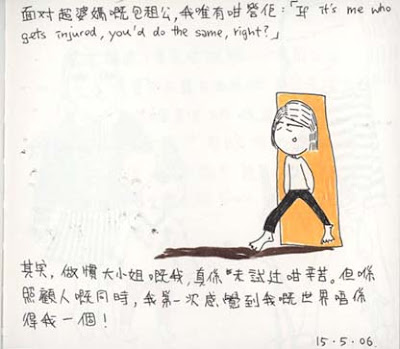 面對超婆媽嘅包租公，我唯有咁營佢：「If it's me who
gets injured, you'd do the same, right?」
其實，做慣大小姐嘅我，真係未試过咁辛苦。但喺
照顧人嘅同時，我第一次感覺到我嘅世界唔係
得我一個！
15.5.06.